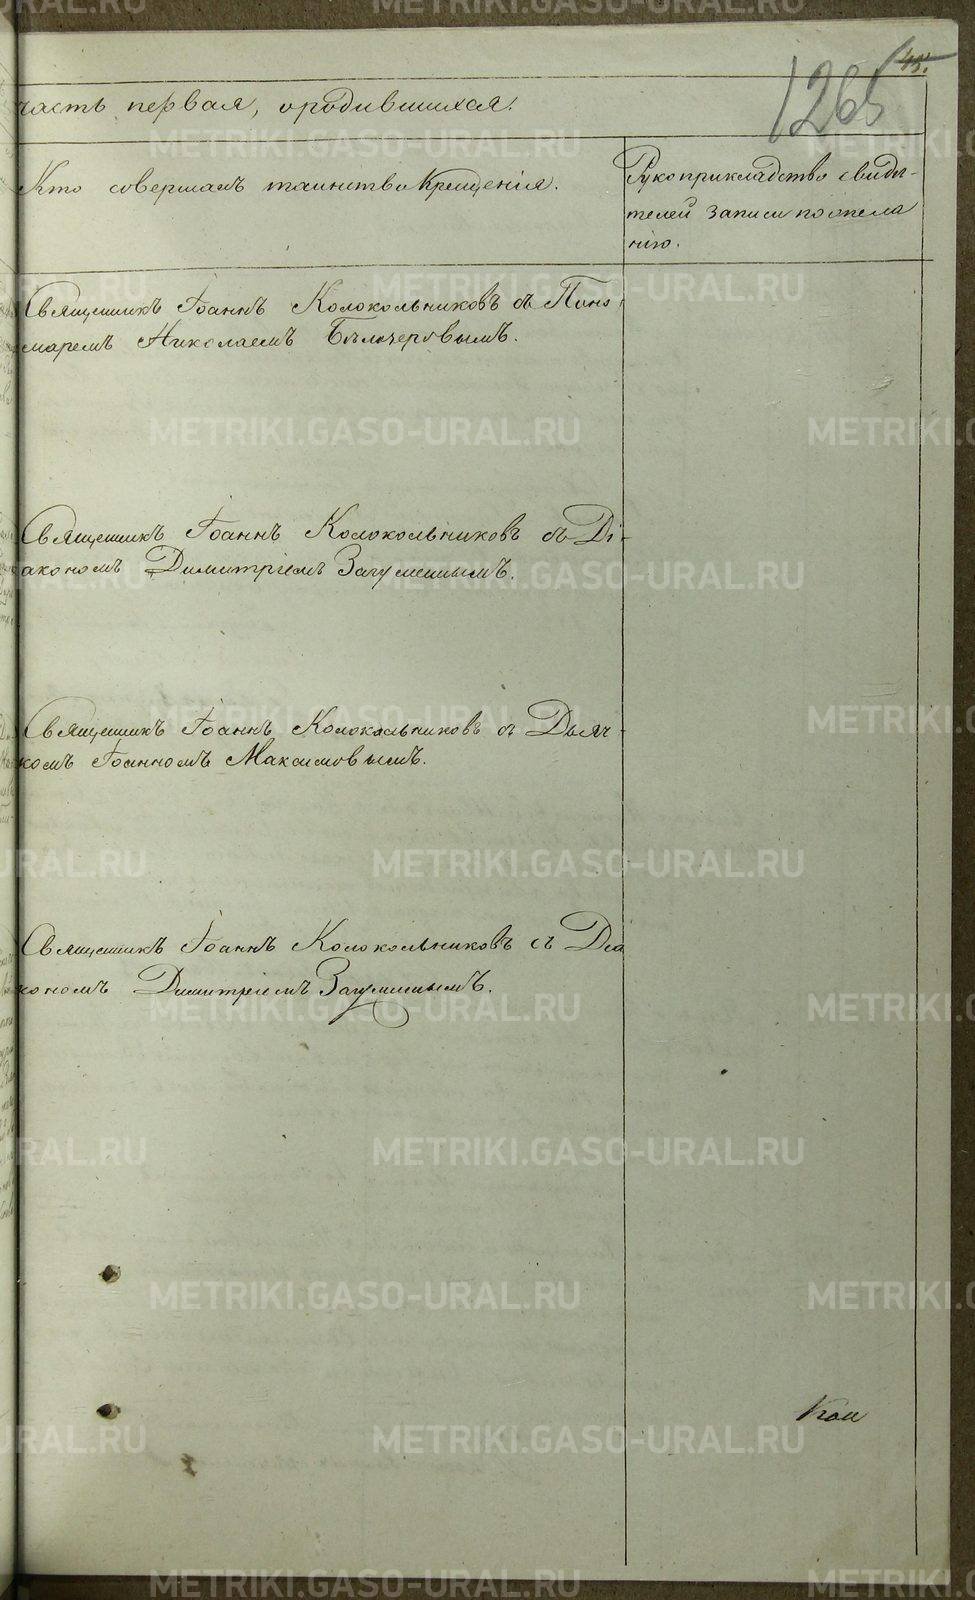 45.
1265
часть первая, о родившихся.
Кто совершалъ таинство Крещенія.
Рукоприкладство свиде-
телей записи по жела
нію.
Священникъ Іоаннъ Колокольниковъ съ Поно
маремъ Николаемъ
Священникъ Іоаннъ Колокольниковъ съ Ді-
акономъ Димитріемъ Загуменнымъ.
Священникъ Іоаннъ Колокольниковъ съ Дьяч-
комъ Іоанномъ Максимовымъ.
Священникъ Іоаннъ Колокольниковъ съ Діа
кономъ Димитріемъ Загуменнымъ.
METRIKI.GASO-URAL.RU